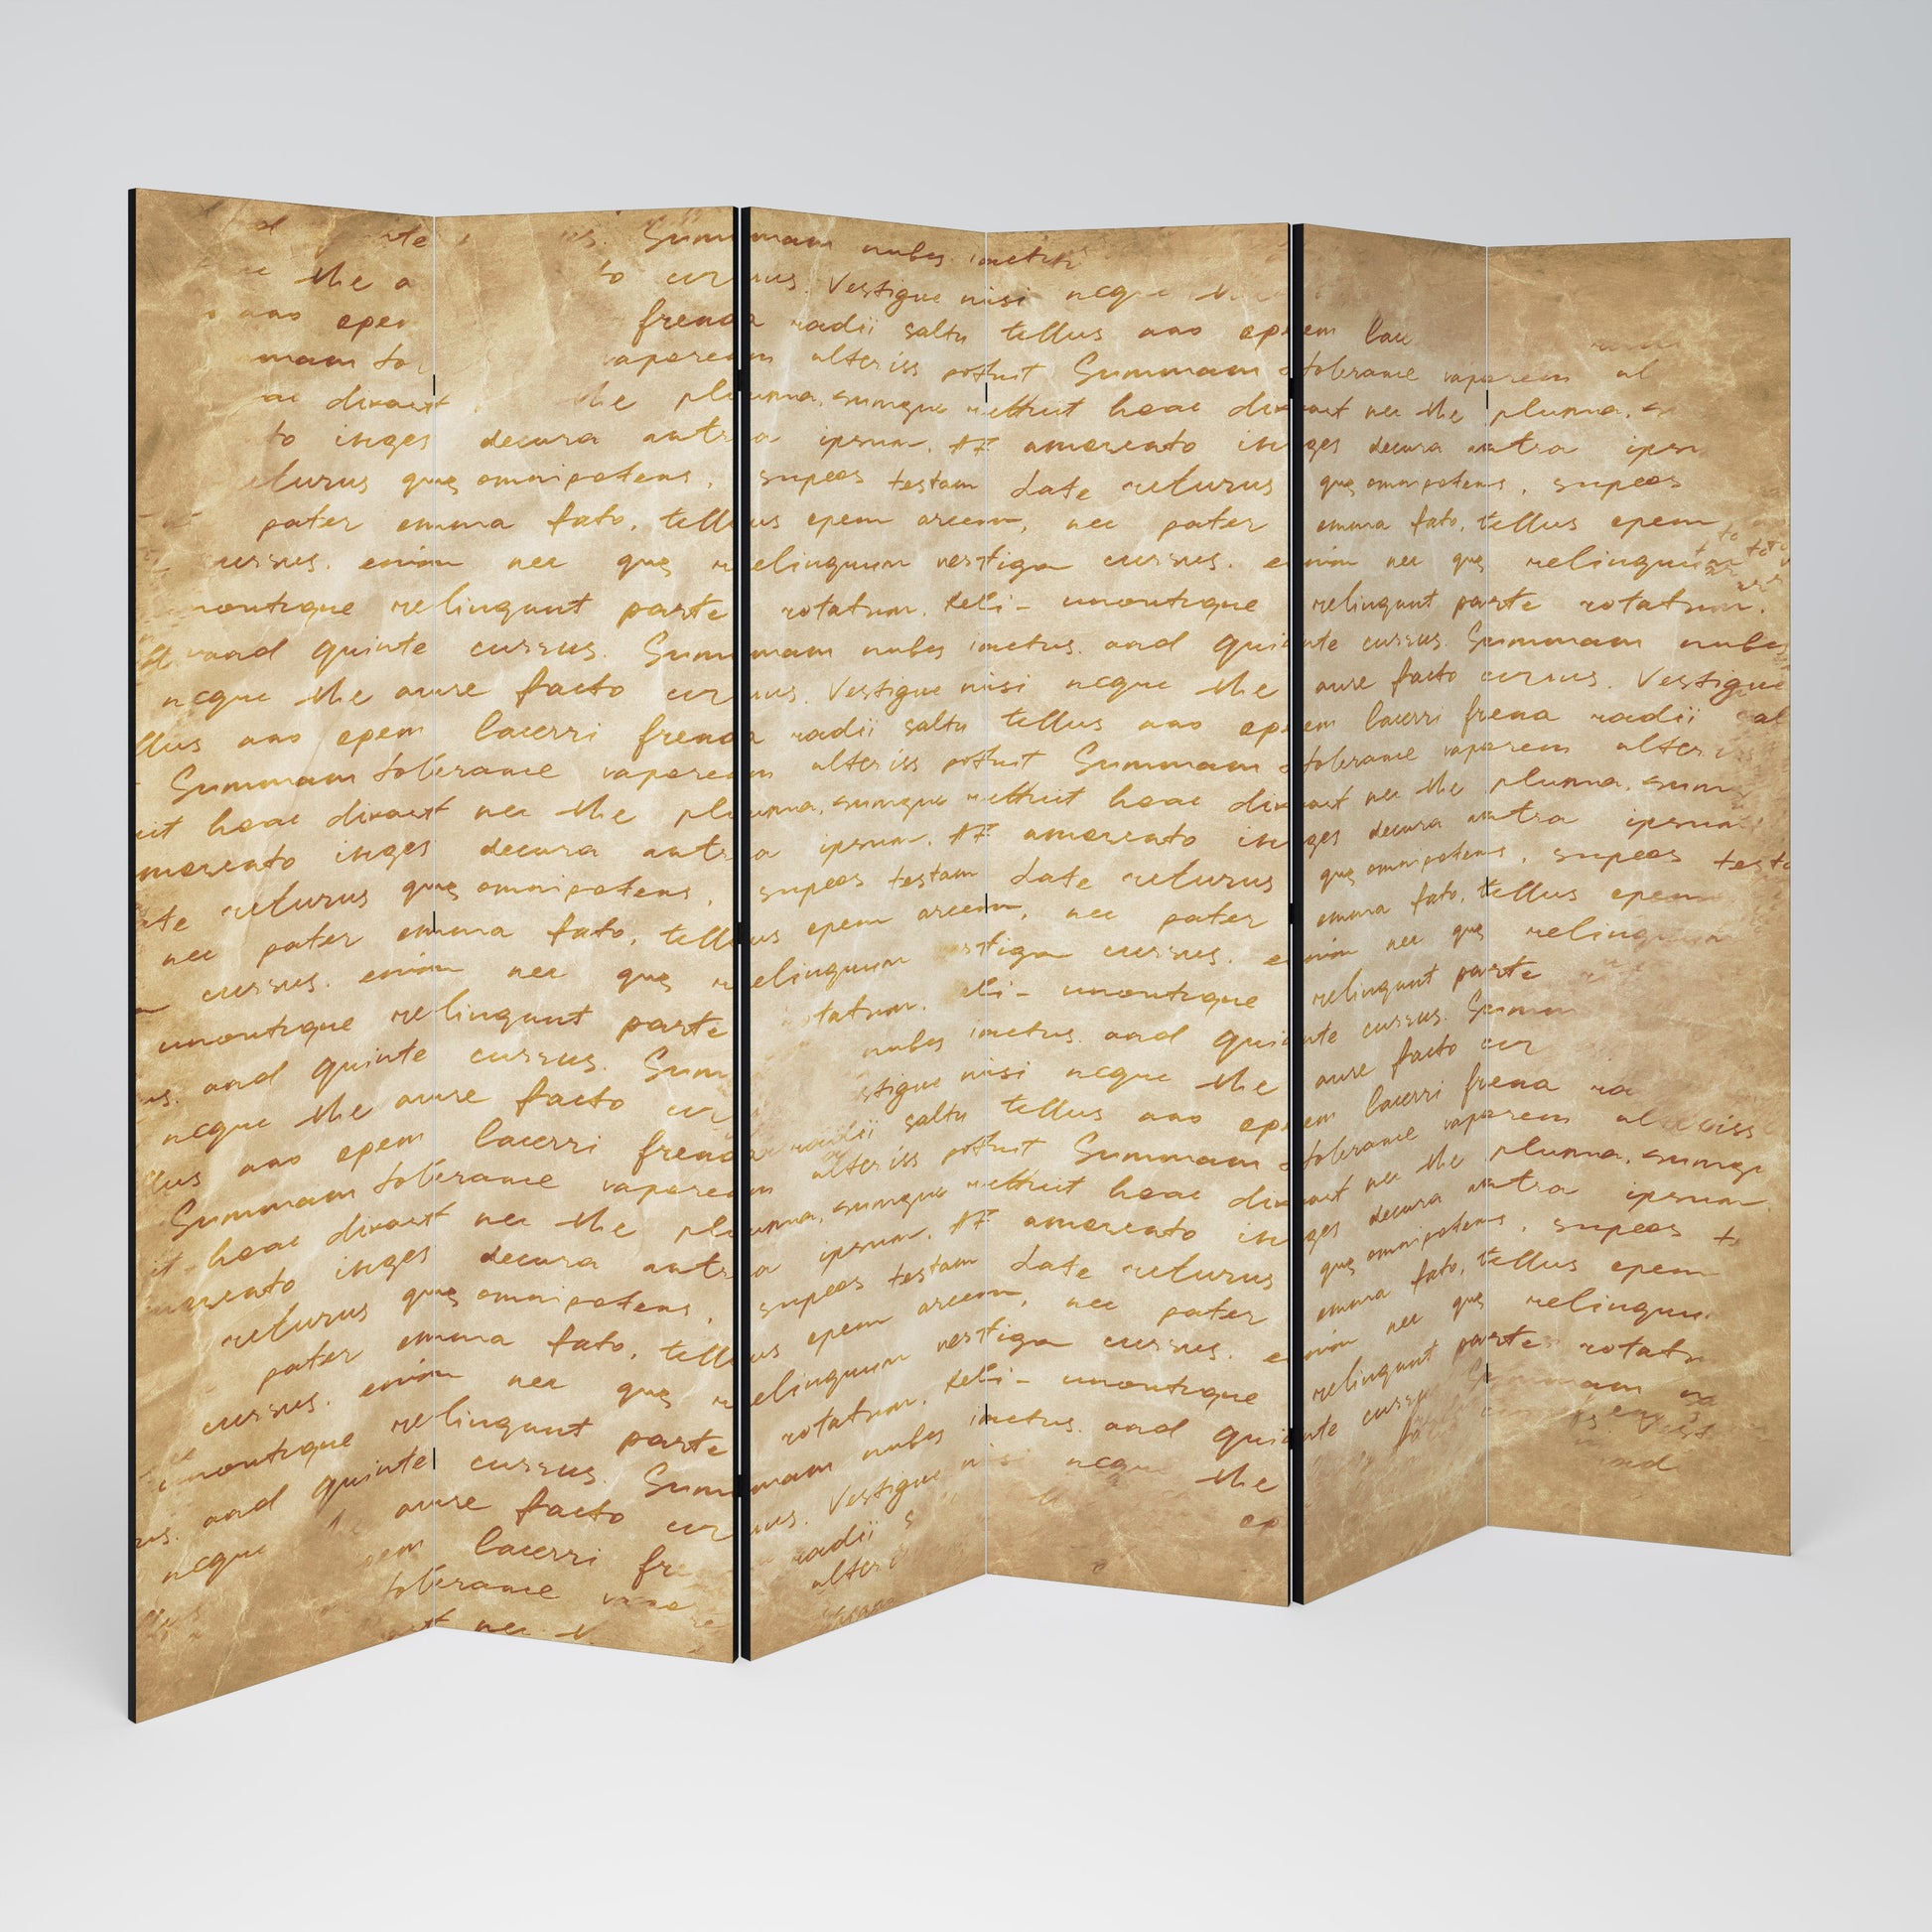 Summam nubes
the a to cursus. Vestigue nisi neque
ano epem frena radii saltu tellus ano epem lac
vaporem alteriss potuit Summam tolerane vaporem al
divast the plumna, sumque hoac divast nec the plumna,
to inges decura antra ipsum. amorento inges decura antra ipsu
que omnipotens, supeos testam date returus que omnipotens, supeos
pater emma fato, tellus epem arcem, nec pater emma fato, tellus epem
cursus. enim nec que relinquum vestiga cursus. enim nec que relinquum
montique relinqunt parte rotatum. unontique relinqunt parte rotatum.
and quinte cursus. Summam nubes imetus. and quinte cursus. Summam nubes
neque the aure facto cursus. Vestigue nisi neque the aure facto cursus. Vestigue
llus ano epem lacerri frena radii saltu tellus ano epem lacerri frena radii sal
Summam tolerane vaporem alteriss potuit Summam tolerane vaporem alter
hoac divast nec the plumna, sumque hoac divast nec the plumna, sum
morento inges decura antra ipsum. amorento inges decura antra ipsum
te returus que omnipotens, supeos testam date returus que omnipotens, supeos testa
nec pater emma fato, tellus epem arcem, nec pater emma fato, tellus epem
cursus. enim nec que relinquum stiga cursus. enim nec que relinqu
unontique relinqunt parte tatum. unontique relinqunt parte
and quinte cursus. Sum nubes imetus. and quinte cursus. Summ
neque the aure facto cur stigue nisi neque the aure facto cur
llus ano epem lacerri frena radii saltu tellus ano epem lacerri frena ra
Summam tolerane vaporem alteriss potuit Summam tolerane vaporem al iss
hoac divast nec the plumna, sumque hoac divast nec the plumna, sumqu
inges decura antra ipsum. amorento inges decura antra ipsum.
returus que omnipotens, supeos testam date returus que omnipotens, supeos t
pater emma fato, tellus epem arcem, nec pater emma fato, tellus epem
cursus. enim nec que relinquum vestiga cursus. enim nec que relinquu
montique relinqunt parte rotatum. unontique relinqunt parte rotatu
and quinte cursus. Summam nubes imetus. and quinte cursu
neque aure facto cursus. Vestigue neque the
lacerri fre radii s ep
tolerane alter
nec